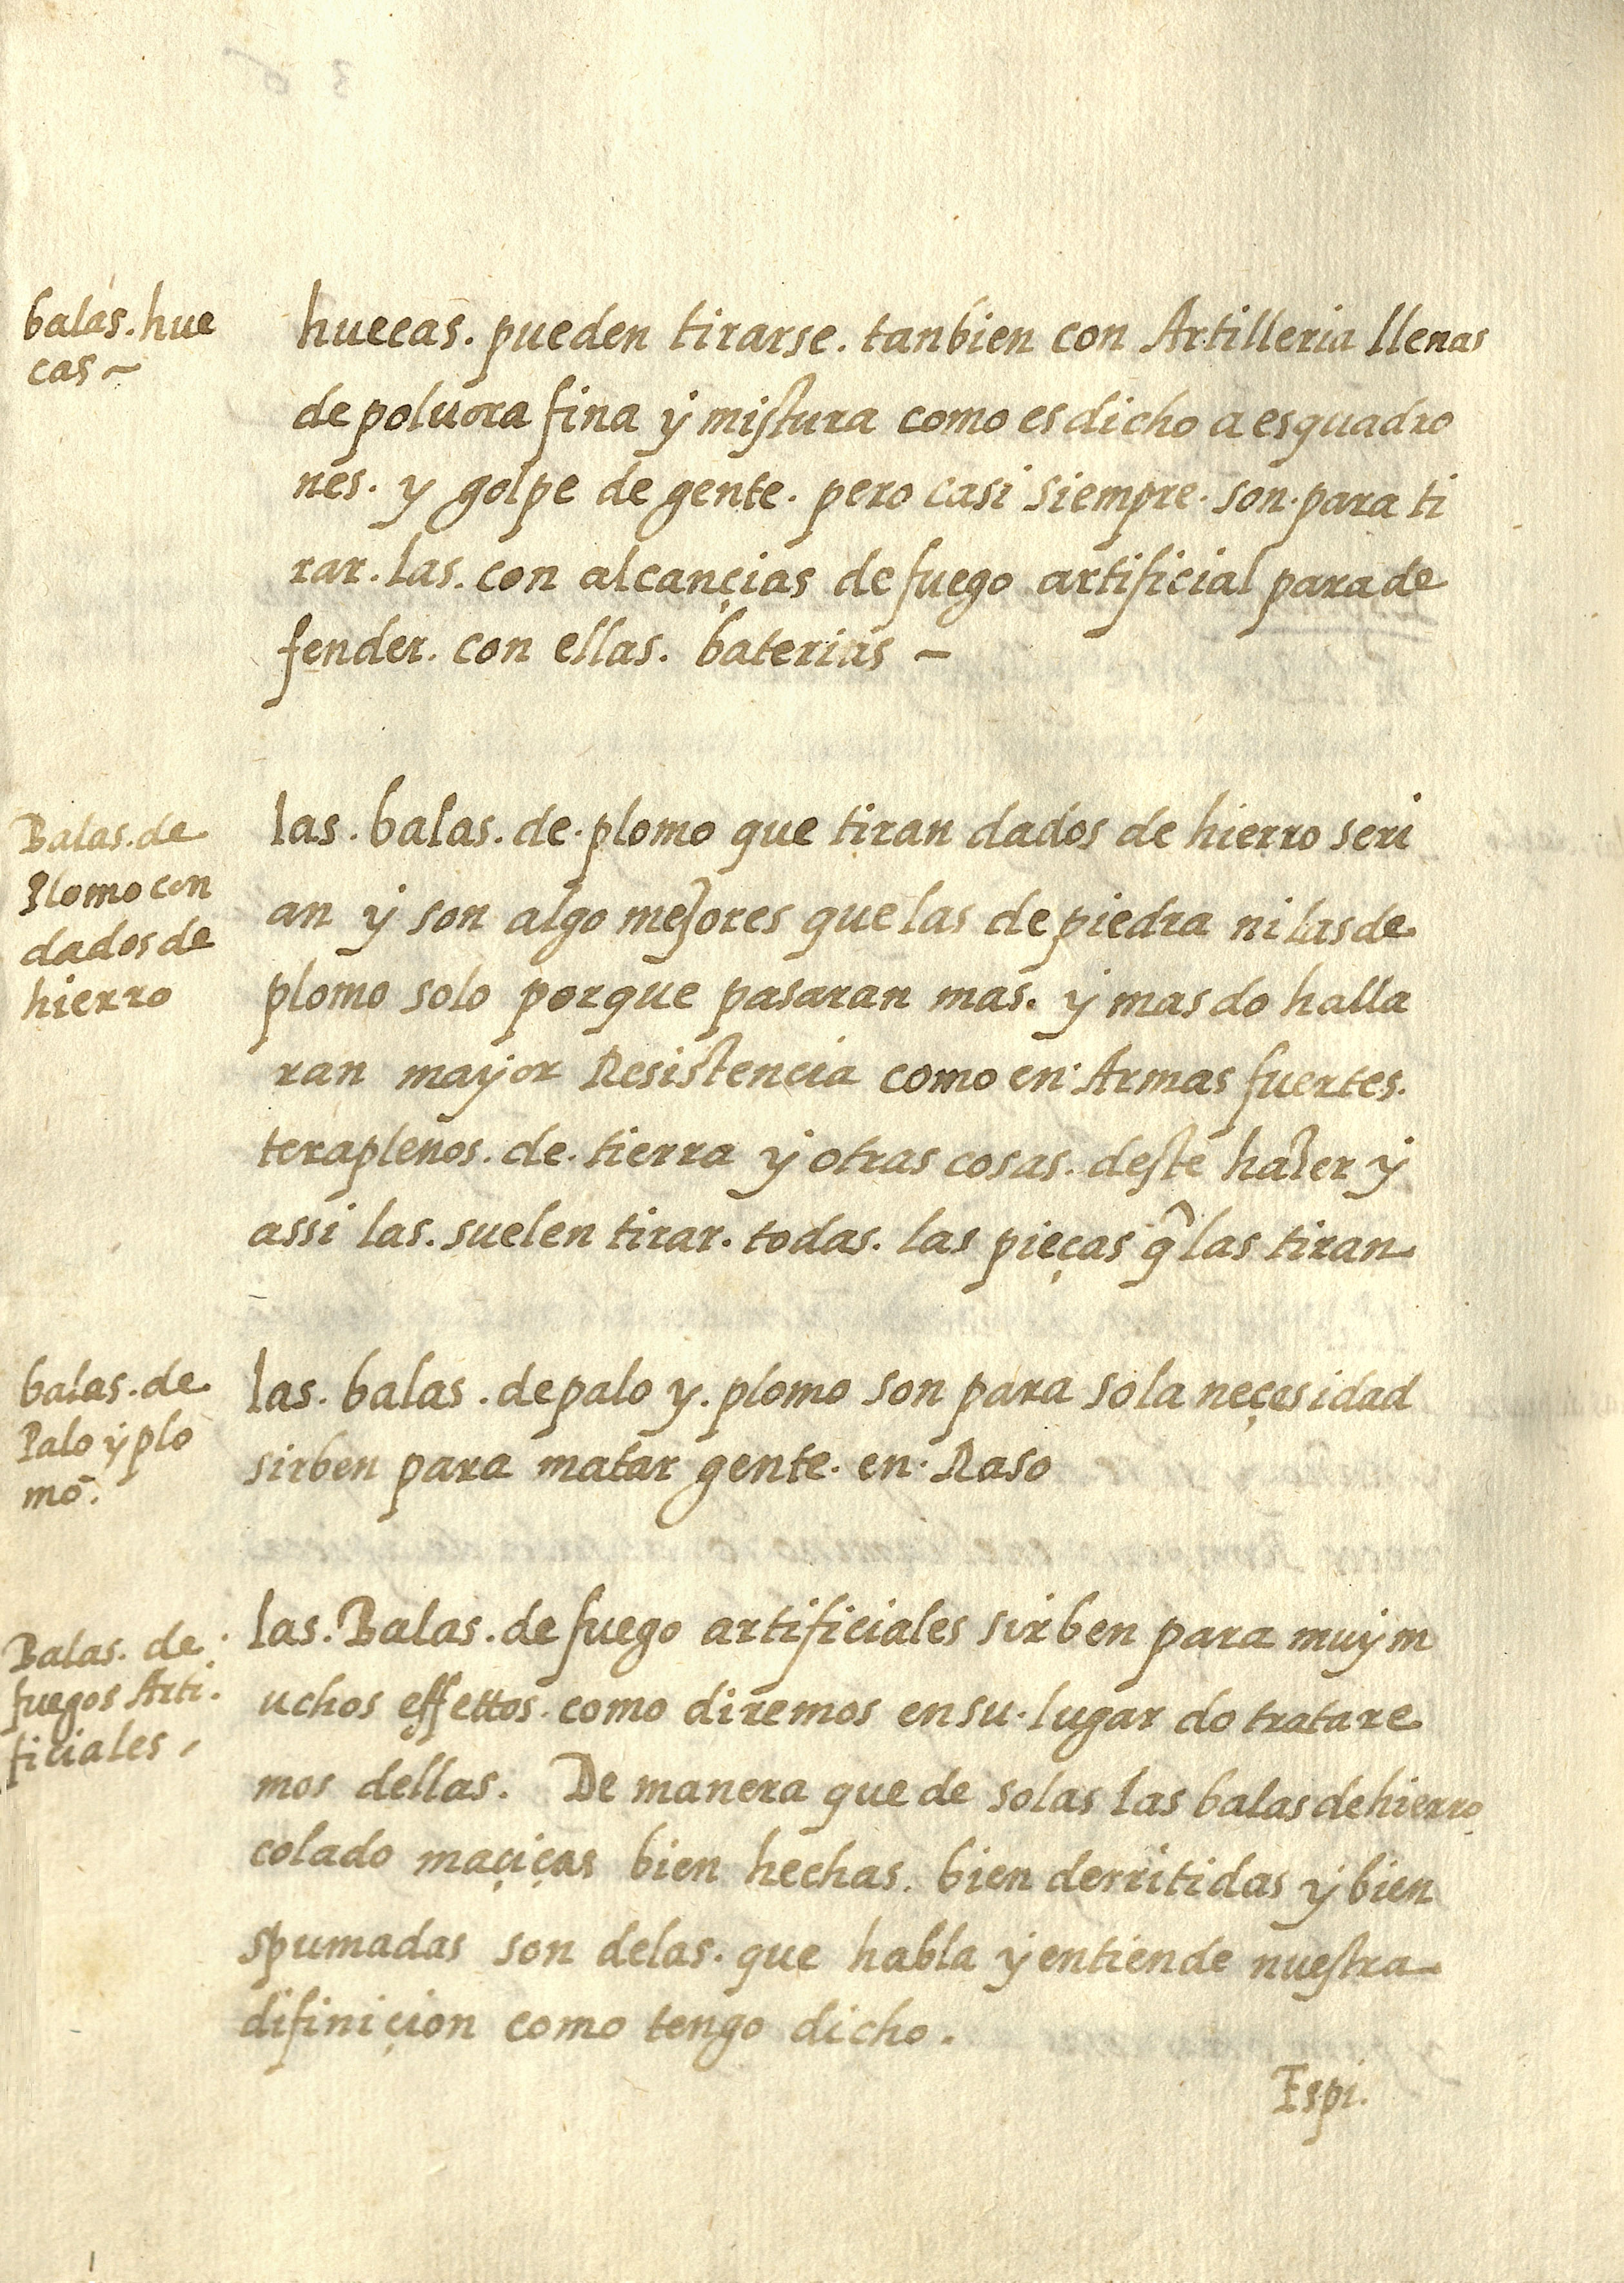 balas. hue
cas~
huecas. pueden tirarse. tanbien con Artilleria llenas
de poluora fina ÿ mistura como es dicho a esquadro
nes. y golpe de gente. pero casi siempre. son. para ti
rar. las. con alcançias de fuego artificial para de
fender. con ellas. baterias ~
Balas. de
Plomo con
dados de
hierro
las. balas. de. plomo que tiran dados de hierro seri
an ÿ son algo mejores que las de piedra ni las de
plomo solo porque pasaran mas. ÿ mas do halla
ran mayor Resistencia como en Armas fuertes.
teraplenos. de. tierra ÿ otras cosas. deste hazer ÿ
assi las. suelen tirar. todas. las pieças q̂ las tiran
balas. de
Palo ÿ plo
mo.
las. balas. de palo y. plomo son para sola neçesidad
sirben para matar gente. en. Raso
Balas. de
fuegos Arti.
ficiales
las. Balas. de fuego artificiales sirben para muÿ m
uchos effettos. como diremos en su. lugar do tratare
mos dellas. De manera que de solas las balas de hierro
colado maçiças bien hechas. bien derritidas ÿ bien
spumadas son de las. que habla ÿ entiende nuestra
difiniçion como tengo dicho.
Espi.